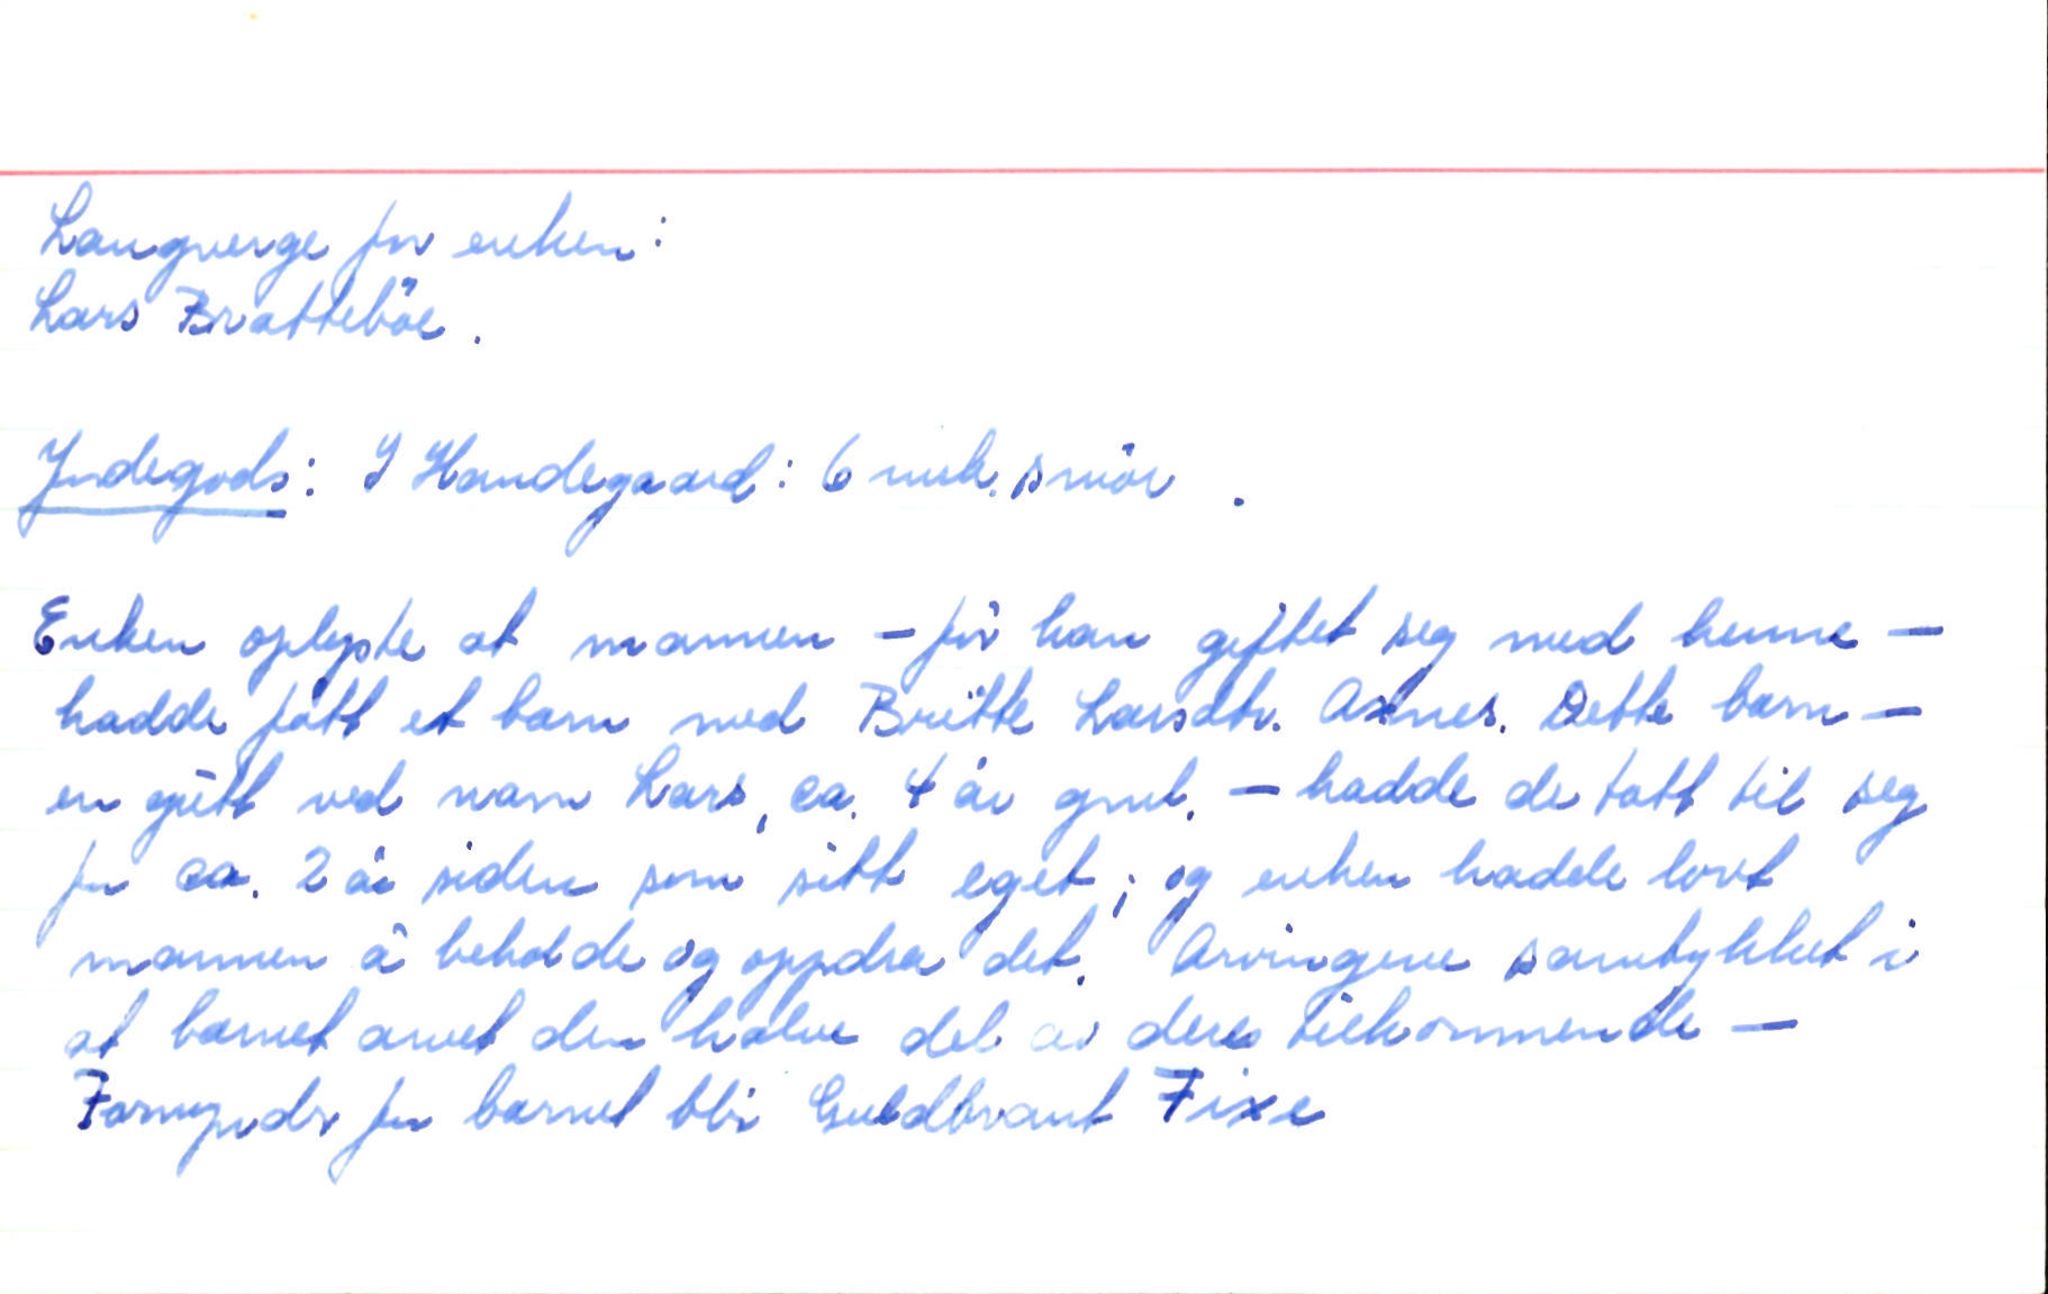 Laugverge for enken:
Lars Bratteböe.
Jndegods: I Handegaard: 6 mrk. smör.
Enken oplyste at mannen – för han giftet seg med henne –
hadde fått et barn med Britte Larsdtr. Axnes. Dette barn –
en gutt ved navn Lars, ca. 4 år gml. – hadde de tatt til seg
for ca. 2 år siden som sitt eget; og enken hadde lovt
mannen å beholde og oppdra det. Arvingene samtykket i
at barnet arvet den halve del av deres tilkommende –
Formyndr for barnet bli Guldbrant Fixe